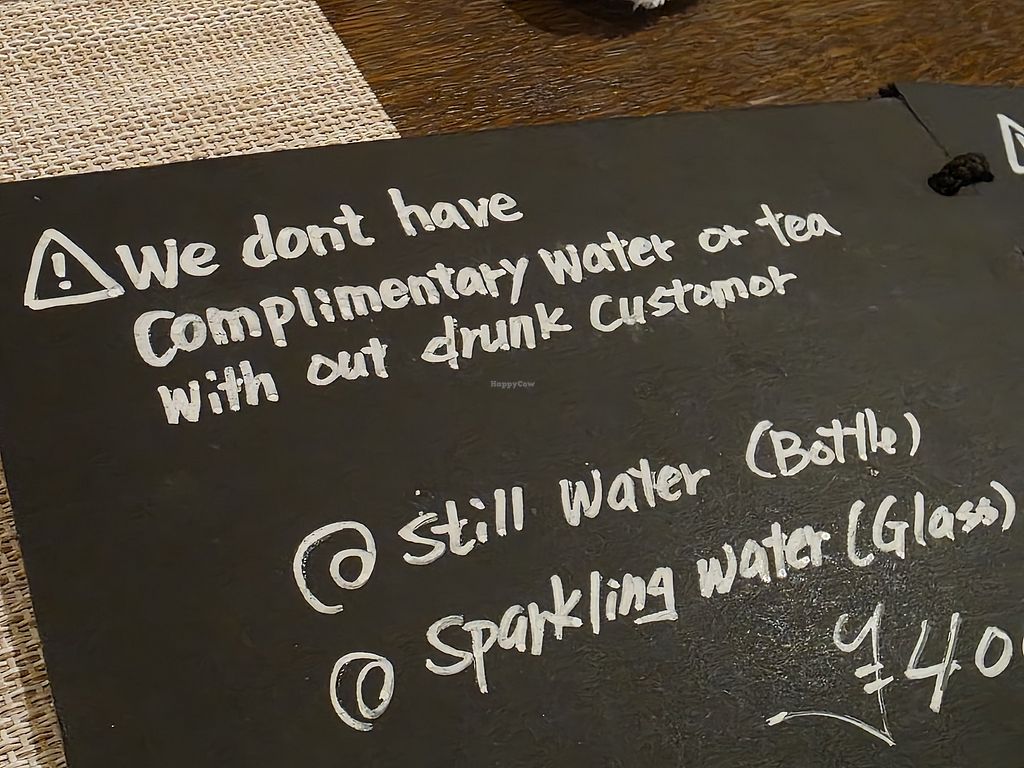 We dont have
Complimentary Water or tea
With out drunk Customor
Still Water (Bottle)
Sparkling Water (Glass)
¥40
HappyCow